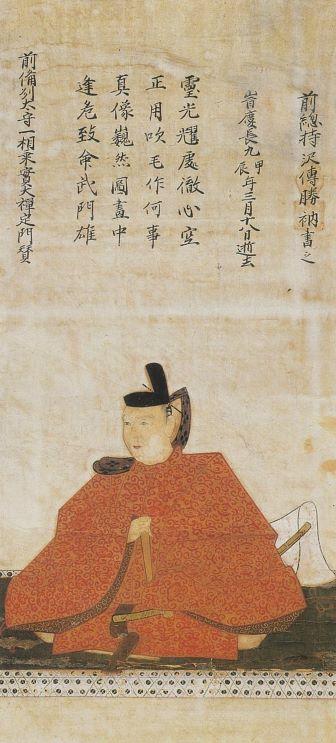 前俻州太守一相實大禅定門賛
逢危致命武門雄
真像巍然圖畫中
正用吹毛作何事
靈光耀處徹心空
旹慶長九甲辰年三月十八日逝去
前總持沢傳勝衲書之